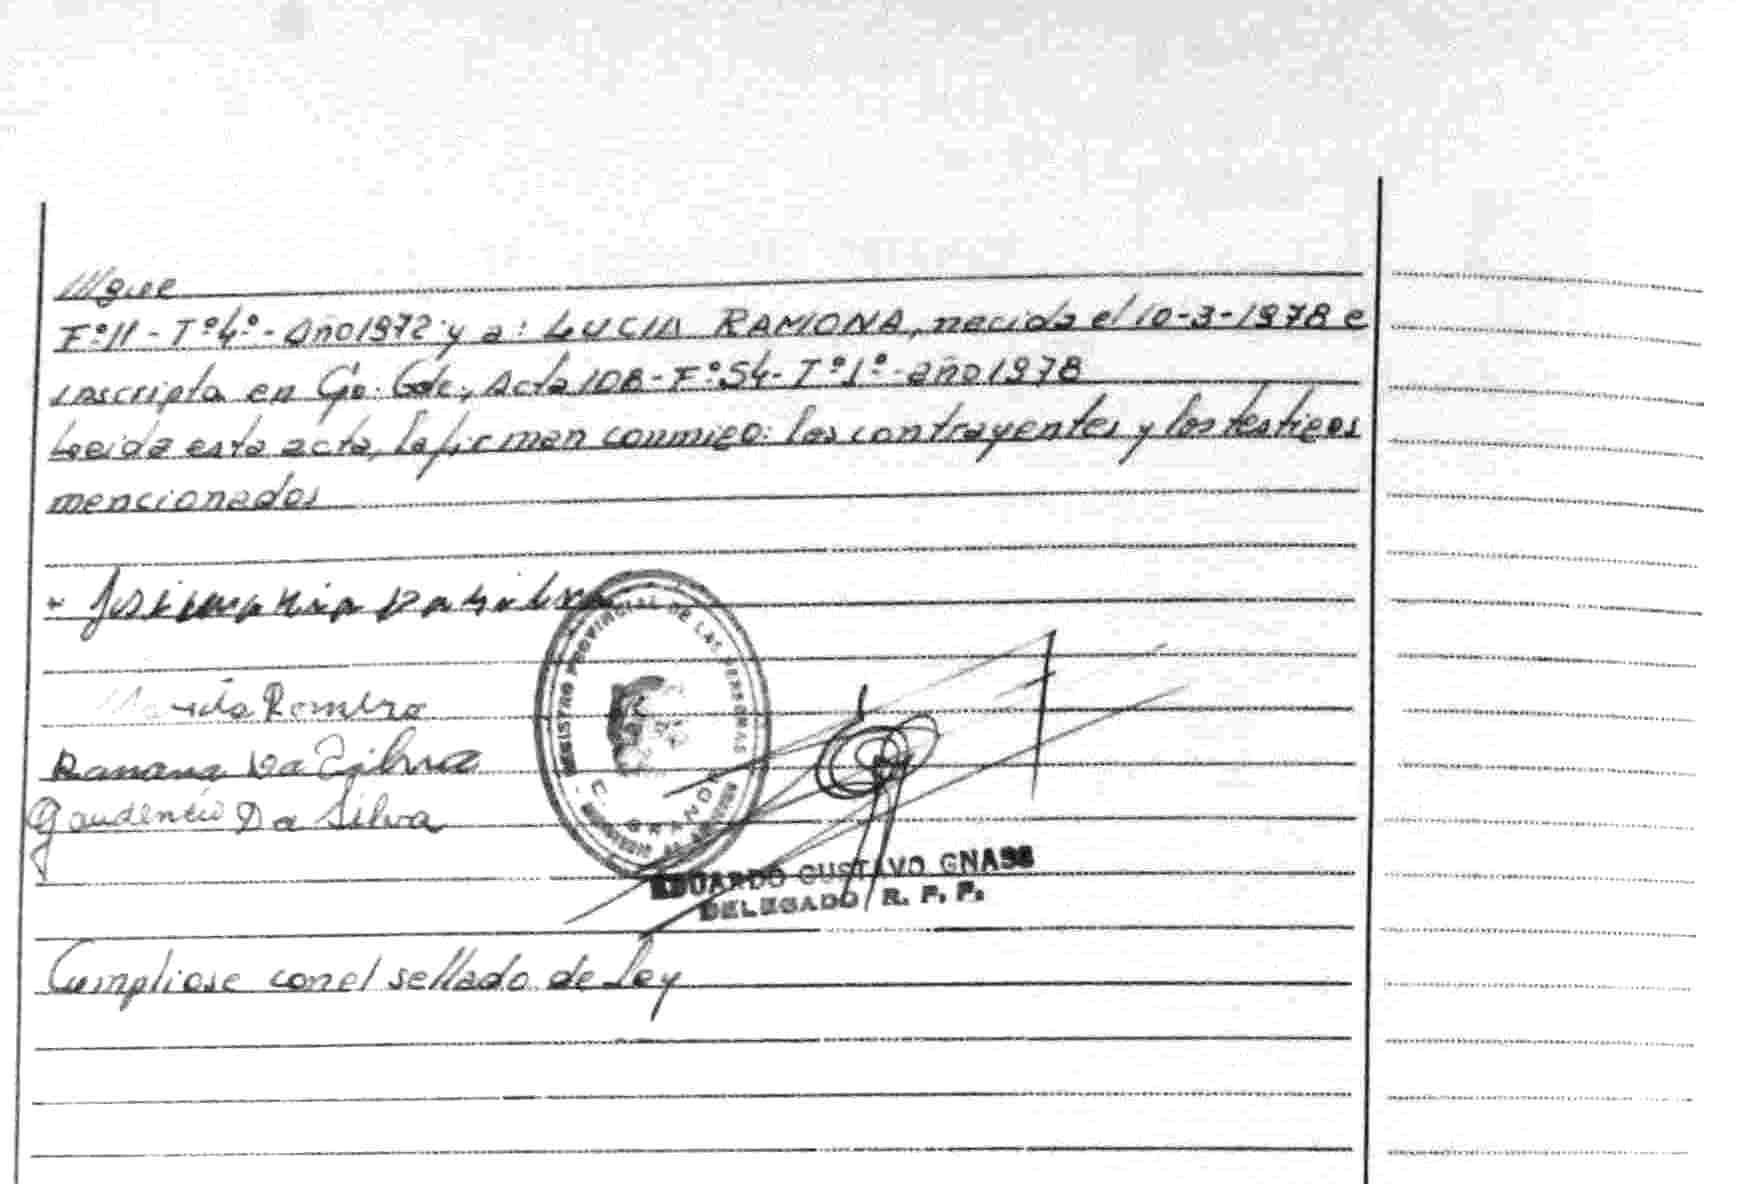 F°11 - T°4°- Año 1972 y a: LUCIA RAMONA, nacida el 10-3-1978 e
inscripta en Cpo. Gde., Acta 108 - F°54 - T°1°- año 1978
Leida esta acta, la firman conmigo: los contrayentes y los testigos
mencionados
Da Silva
REGISTRO PROVINCIAL DE LAS PERSONAS
C. GRANDE
Romero
Ramona Da Silva
Gaudencio Da Silva
EDUARDO GUSTAVO GNASS
DELEGADO R. P. P.
Cumpliose con el sellado de Ley